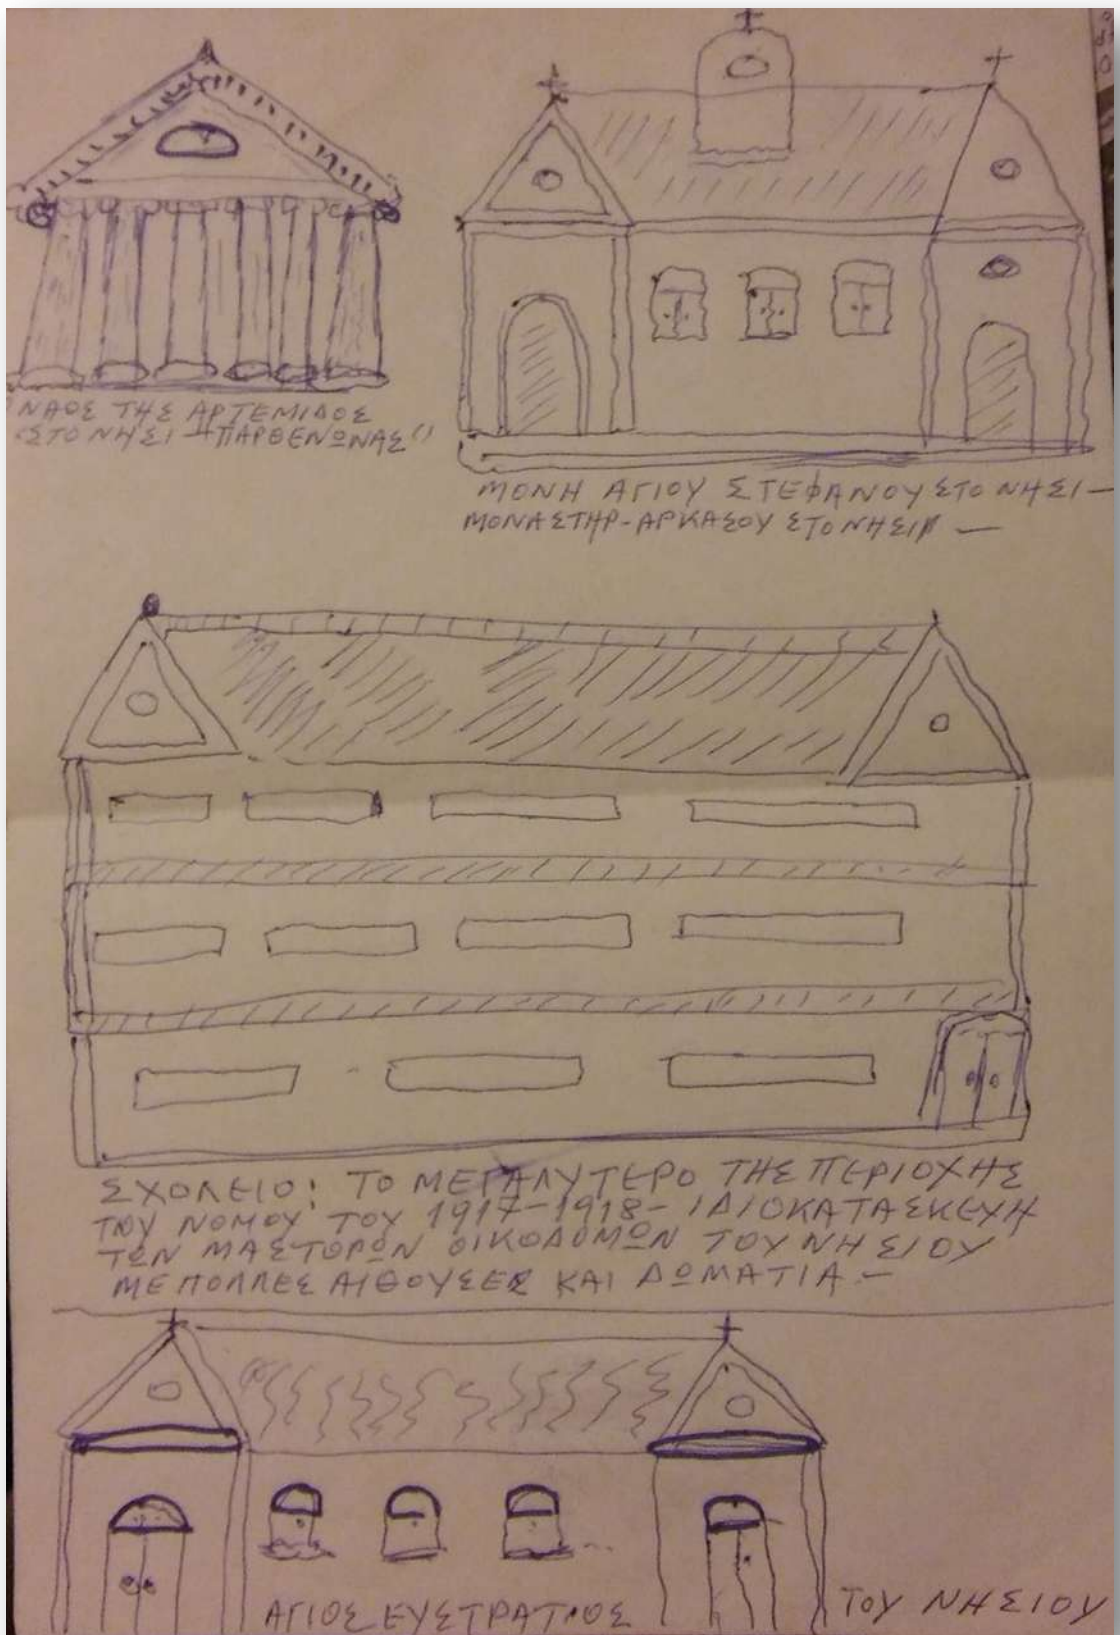 ΝΑΟΣ ΤΗΣ ΑΡΤΕΜΙΔΟΣ
ΣΤΟ ΝΗΣΙ - ΠΑΡΘΕΝΩΝΑΣ"
ΜΟΝΗ ΑΓΙΟΥ ΣΤΕΦΑΝΟΥ ΣΤΟ ΝΗΣΙ -
ΜΟΝΑΣΤΗΡ-ΑΡΚΑΣΟΥ ΣΤΟ ΝΗΣΙ -
ΣΧΟΛΕΙΟ: ΤΟ ΜΕΓΑΛΥΤΕΡΟ ΤΗΣ ΠΕΡΙΟΧΗΣ
ΤΟΥ ΝΟΜΟΥ ΤΟΥ 1917-1918- ΙΔΙΟΚΑΤΑΣΚΕΥΗ
ΤΩΝ ΜΑΣΤΟΡΩΝ ΟΙΚΟΔΟΜΩΝ ΤΟΥ ΝΗΣΙΟΥ
ΜΕ ΠΟΛΛΕΣ ΑΙΘΟΥΣΕΣ ΚΑΙ ΔΩΜΑΤΙΑ.-
ΑΓΙΟΣ ΕΥΣΤΡΑΤΙΟΣ ΤΟΥ ΝΗΣΙΟΥ